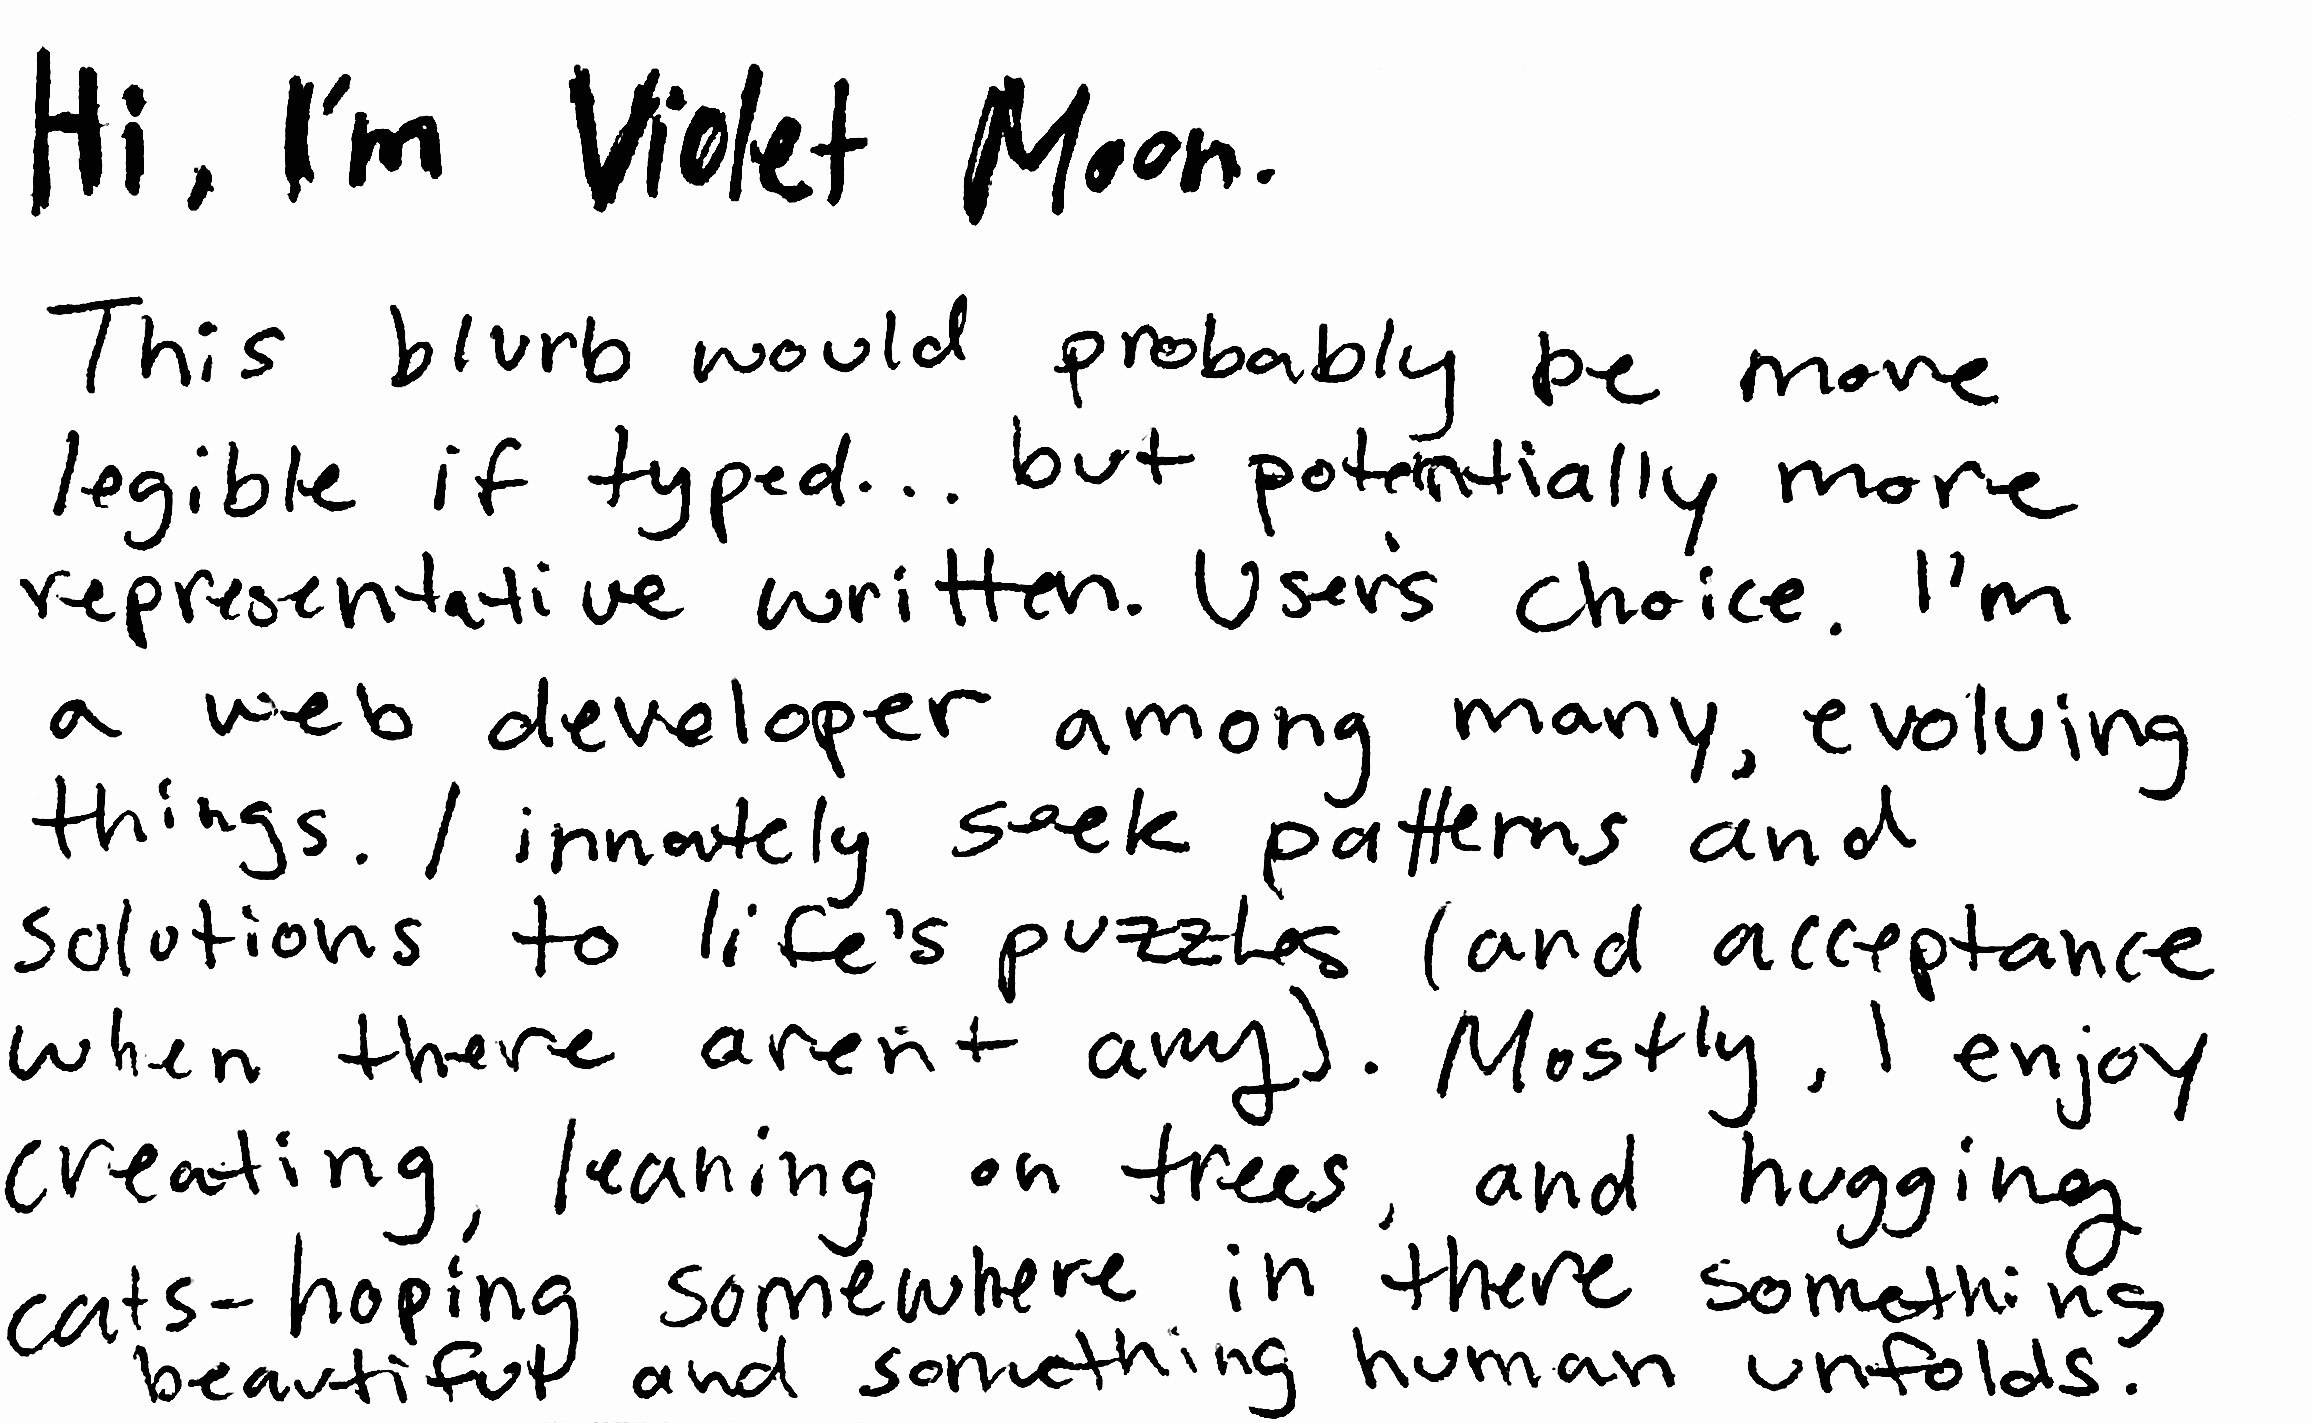 Hi, I'm Violet Moon.
This blurb would probably be more
legible if typed... but potentially more
representative written. User's choice. I'm
a web developer among many, evolving
things. I innately seek patterns and
solutions to life's puzzles (and acceptance
when there aren't any). Mostly, I enjoy
creating, leaning on trees, and hugging
cats- hoping somewhere in there something
beautiful and something human unfolds.